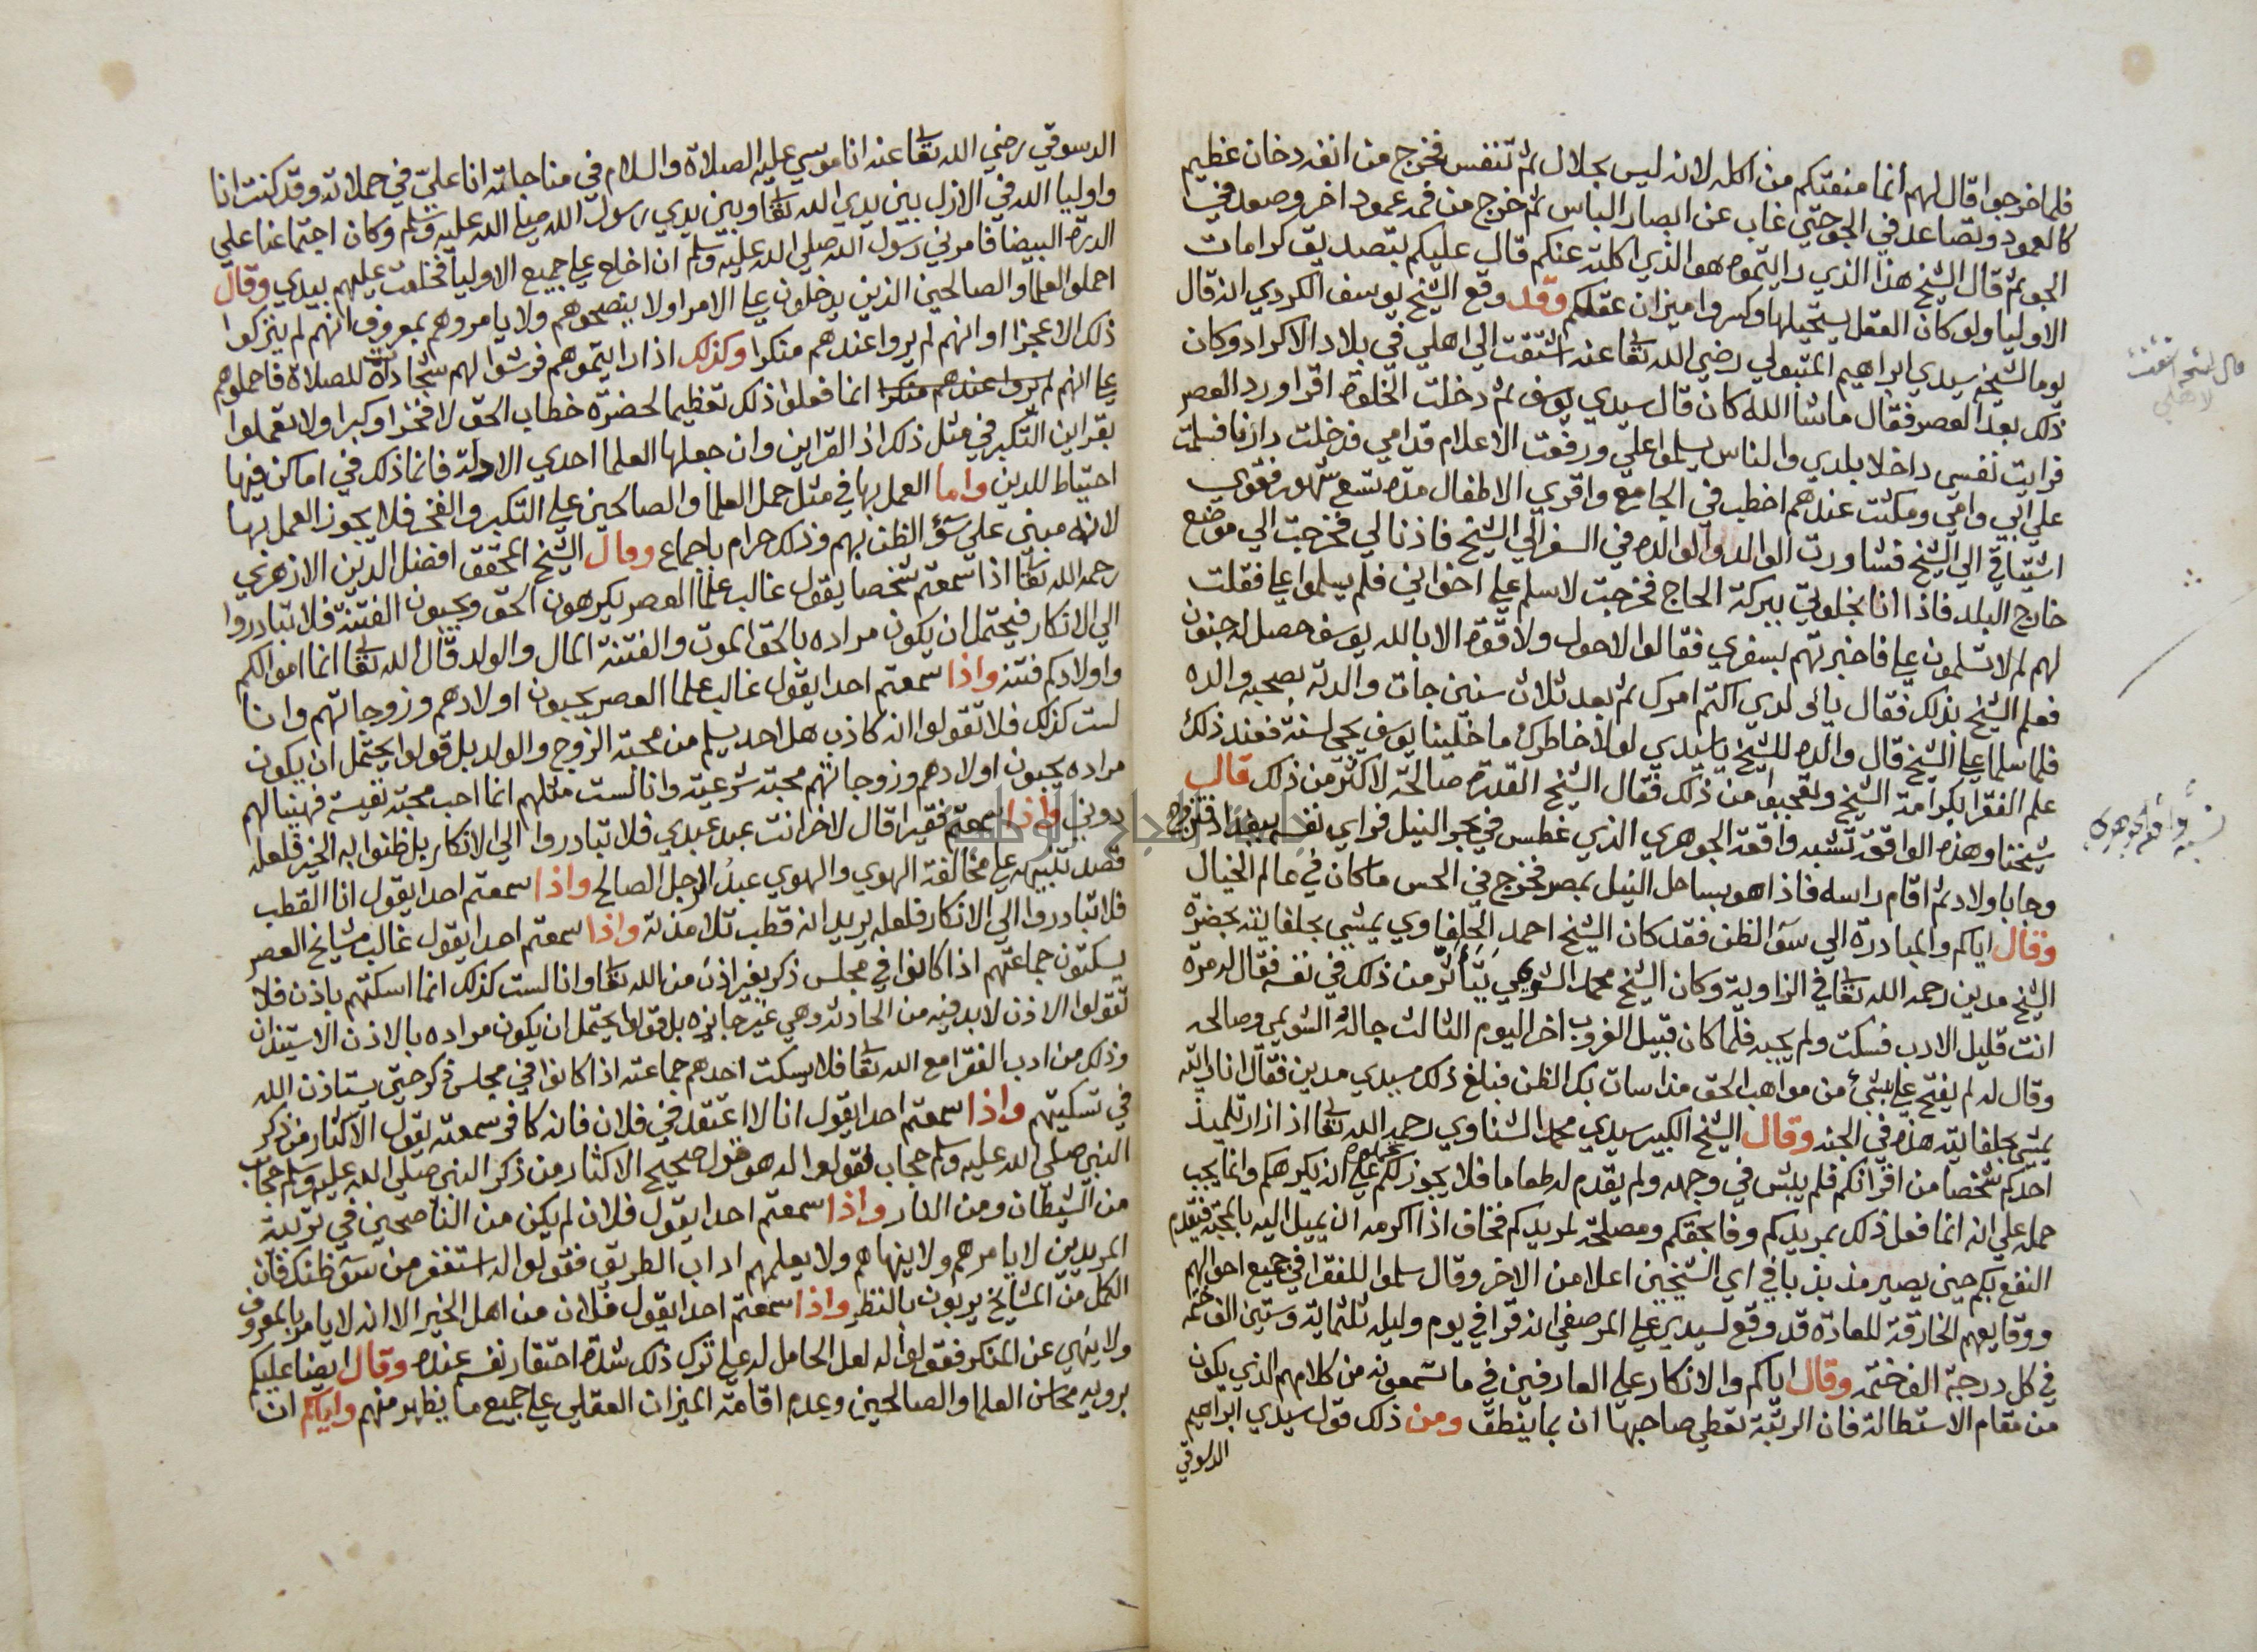 فلما خرجوا قال لهم انما منعتكم من اكله لانه ليس بحلال ثم تنفس فخرج من انفه دخان عظيم
كالعمود وتصاعد في الجو حتي غاب عن ابصار الناس ثم خرج من فمه عمود اخر وصعد في
الجو ثم قال الشيخ هذا الذي رايتموه هو الذي اكلته عنكم قال عليكم بتصديق كرامات
الاوليا ولو كان العقل يستحيلها وكسروا ميزان عقلكم وقد وقع الشيخ يوسف الكردي انه قال
يوما لشيخه سيدي ابراهيم المتبولي رضي الله تعا عنه اشتقت الي اهلي في بلاد الاكراد وكان
ذلك بعد العصر فقال ماشا الله كان قال سيدي يوسف ثم دخلت الخلوة اقرا ورد العصر
فرايت نفسي داخلا بلدي والناس يسلموا علي ورفعت الاعلام قدامي فدخلت دارنا فسلمت
علي ابي وامي ومكثت عندهم اخطب في الجامع واقري الاطفال مدة تسع شهور فقوي
اشتياقي الي الشيخ فشاورت الوالد والوالدة في السفر الي الشيخ فاذنا لي فخرجت الي موضع
خارج البلد فاذا انا بخلوتي ببركة الحاج فخرجت لاسلم علي اخواني فلم يسلموا علي فقلت
لهم لم لا تسلمون علي فاخبرتهم بسفري فقالوا لاحول ولا قوة الا بالله يوسف حصل له جنون
فعلم الشيخ بذلك فقال ياولدي اكتم امرك ثم بعد ثلاث سنين جات والدته بصحبه والده
فلما سلما علي الشيخ قال والده للشيخ ياسيدي لولا خاطرك ما خلينا يوسف يجي لسنة فعند ذلك
علم الفقرا بكرامة الشيخ وتعجبوا من ذلك فقال الشيخ القدرة صالحة لاكثر من ذلك قال
شيخنا وهذه الواقعة تشبه واقعة الجوهري الذي غطس في بحر النيل فراي نفسه ببغداد فتزوج
وجا باولاد ثم اقام راسه فاذا هو بساحل النيل بمصر فخرج في الحس ما كان في عالم الخيال
وقال اياكم والمبادرة الي سو الظن فقد كان الشيخ احمد الحلفاوي يمشي بحلفايته بحضرة
الشيخ مدين رحمه الله تعا في الزاوية وكان الشيخ محمد الشويمي يتأثر من ذلك في نفسه فقال له مرة
انت قليل الادب فسكت ولم يجبه فلما كان قبيل الغروب اخر اليوم الثالث جا له الشويمي وصالحه
وقال له لم يفتح علي بشئ من مواهب الحق منذ اسات بك الظن فبلغ ذلك سيدي مدين فقال انا رايته
يمشي بحلفايته هذه في الجنه وقال الشيخ الكبير سيدي محمد الشناوي رحمه الله تعا اذا زار تلميذ
احدكم شخصا من اقرانكم فلم يبش في وجهه ولم يقدم له طعاما فلا يجوز لكم حمله علي انه يكرهكم وانما يجب
حمله علي انه انما فعل ذلك بمريدكم وفا بحقكم ومصلحة لمريدكم فخاف اذا اكرمه ان يميل اليه بالمحبة فيعدم
النفع بكم حين يصير مذبذبا في اي الشيخين اعلا من الاخر وقال سلموا للفقرا في جميع احوالهم
ووقايعهم الخارقة للعادة قد وقع لسيدي علي المرصفي انه قرا في يوم وليله ثلثماية وستين الف ختمه
في كل درجة الف ختمه وقال اياكم والانكار علي العارفين في ما تسمعونه من كلامهم الذي يكون
من مقام الاستطالة فان الرتبة تعطي صاحبها ان بما ينطق ومن ذلك قول سيدي ابراهيم
الدسوقي
تشبه واقعة الجوهري
الدسوقي رضي الله تعا عنه انا موسي عليه الصلاة والسلام في مناجاته انا علي في حملاته وقد كنت انا
واوليا الله في الازل بين يدي الله تعا وبين يدي رسول الله صلي الله عليه وسلم وكان اجتماعنا علي
الدرة البيضا فامرني رسول الله صلي الله عليه وسلم ان اخلع علي جميع الاوليا فخلعت عليهم بيدي وقال
احملوا العلما والصالحين الذين يدخلون علي الامرا ولا ينصحوهم ولا يامروهم بمعروف انهم لم يتركوا
ذلك الا عجزا او انهم لم يروا عندهم منكرا وكذلك اذا رايتموهم فرشوا لهم سجادات للصلاة فاحملوهم
علي انهم لم يروا عندهم منكرا انما فعلوا ذلك تعظيما لحضرة خطاب الحق لا فخرا وكبرا ولا تعملوا
بقراين التكبر في مثل ذلك اذ القراين وان جعلها العلما احدي الادلة فانما ذلك في اماكن فيها
احتياط للدين واما العمل بها في مثل حمل العلما والصالحين علي التكبر والفخر فلا يجوز العمل بها
لانه مبني علي سوء الظن بهم وذلك حرام باجماع وقال الشيخ المحقق افضل الدين الازهري
رحمه الله تعا اذا سمعتم شخصا يقول غالب علما العصر يكرهون الحق ويحبون الفتنة فلا تبادروا
الي الانكار فيحتمل ان يكون مراده بالحق الموت والفتنة المال والولد قال الله تعا انما اموالكم
واولادكم فتنه واذا سمعتم احدا يقول غالب علما العصر يحبون اولادهم وزوجاتهم وانا
لست كذلك فلا تقولوا انه كاذب هل احد يسلم من محبة الزوج والولد بل قولوا يحتمل ان يكون
مراده يحبون اولادهم وزوجاتهم محبة شرعية وانا لست مثلهم انما احب محبة نفيسة فهنيا لهم
دوني واذا سمعتم فقيرا قال لاخر انت عبد عبدي فلا تبادروا الي الانكار بل ظنوا به الخير فلعله
قصد تنبيهه علي مخالفة الهوي والهوي عبد الرجل الصالح واذا سمعتم احدا يقول انا القطب
فلا تبادروا الي الانكار فلعله يريد انه قطب تلامذته واذا سمعتم احدا يقول غالب مشايخ العصر
يسكتون جماعتهم اذا كانوا في مجلس ذكر بغير اذن من الله تعا وانا لست كذلك انما اسكتهم باذن فلا
تقولوا الاذن لابد فيه من الحادثة وهي غير جايزه بل قولوا يحتمل ان يكون مراده بالاذن الاستيذان
وذلك من ادب الفقرا مع الله تعا فلا يسكت احدهم جماعته اذا كانوا في مجلس ذكر حتي يستاذن الله
في تسكيتهم واذا سمعتم احدا يقول انا لا اعتقد في فلان فانه كافر سمعته يقول الاكثار من ذكر
النبي صلي الله عليه وسلم حجاب فقولوا له هو قول صحيح الاكثار من ذكر النبي صلي الله عليه وسلم حجاب
من الشيطان ومن النار واذا سمعتم احدا يقول فلان لم يكن من الناصحين في تربية
المريدين لا يامرهم ولا ينهاهم ولا يعلمهم اداب الطريق فقولوا له استغفر من سو ظنك فان
الكمل من المشايخ يربون بالنظر واذا سمعتم احدا يقول فلان من اهل الخير الا انه لا يامر بالمعروف
ولا ينهي عن المنكر فقولوا له لعل الحامل له علي ترك ذلك شدة احتقار نفسه عنده وقال ايضا عليكم
بروية محاسن العلما والصالحين وعدم اقامة الميزان العقلي علي جميع ما يظهر منهم واياكم ان